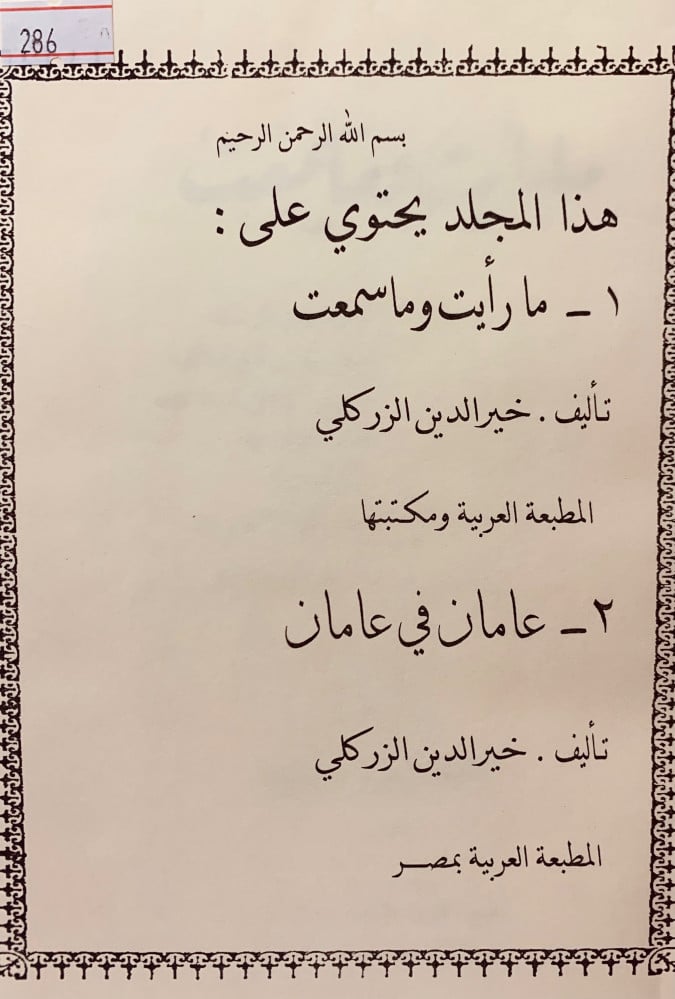 286
بسم الله الرحمن الرحيم
هذا المجلد يحتوي على :
١ ـ ما رأيت وما سمعت
تأليف . خير الدين الزركلي
المطبعة العربية ومكتبتها
٢ ـ عامان في عامان
تأليف . خير الدين الزركلي
المطبعة العربية بمصر